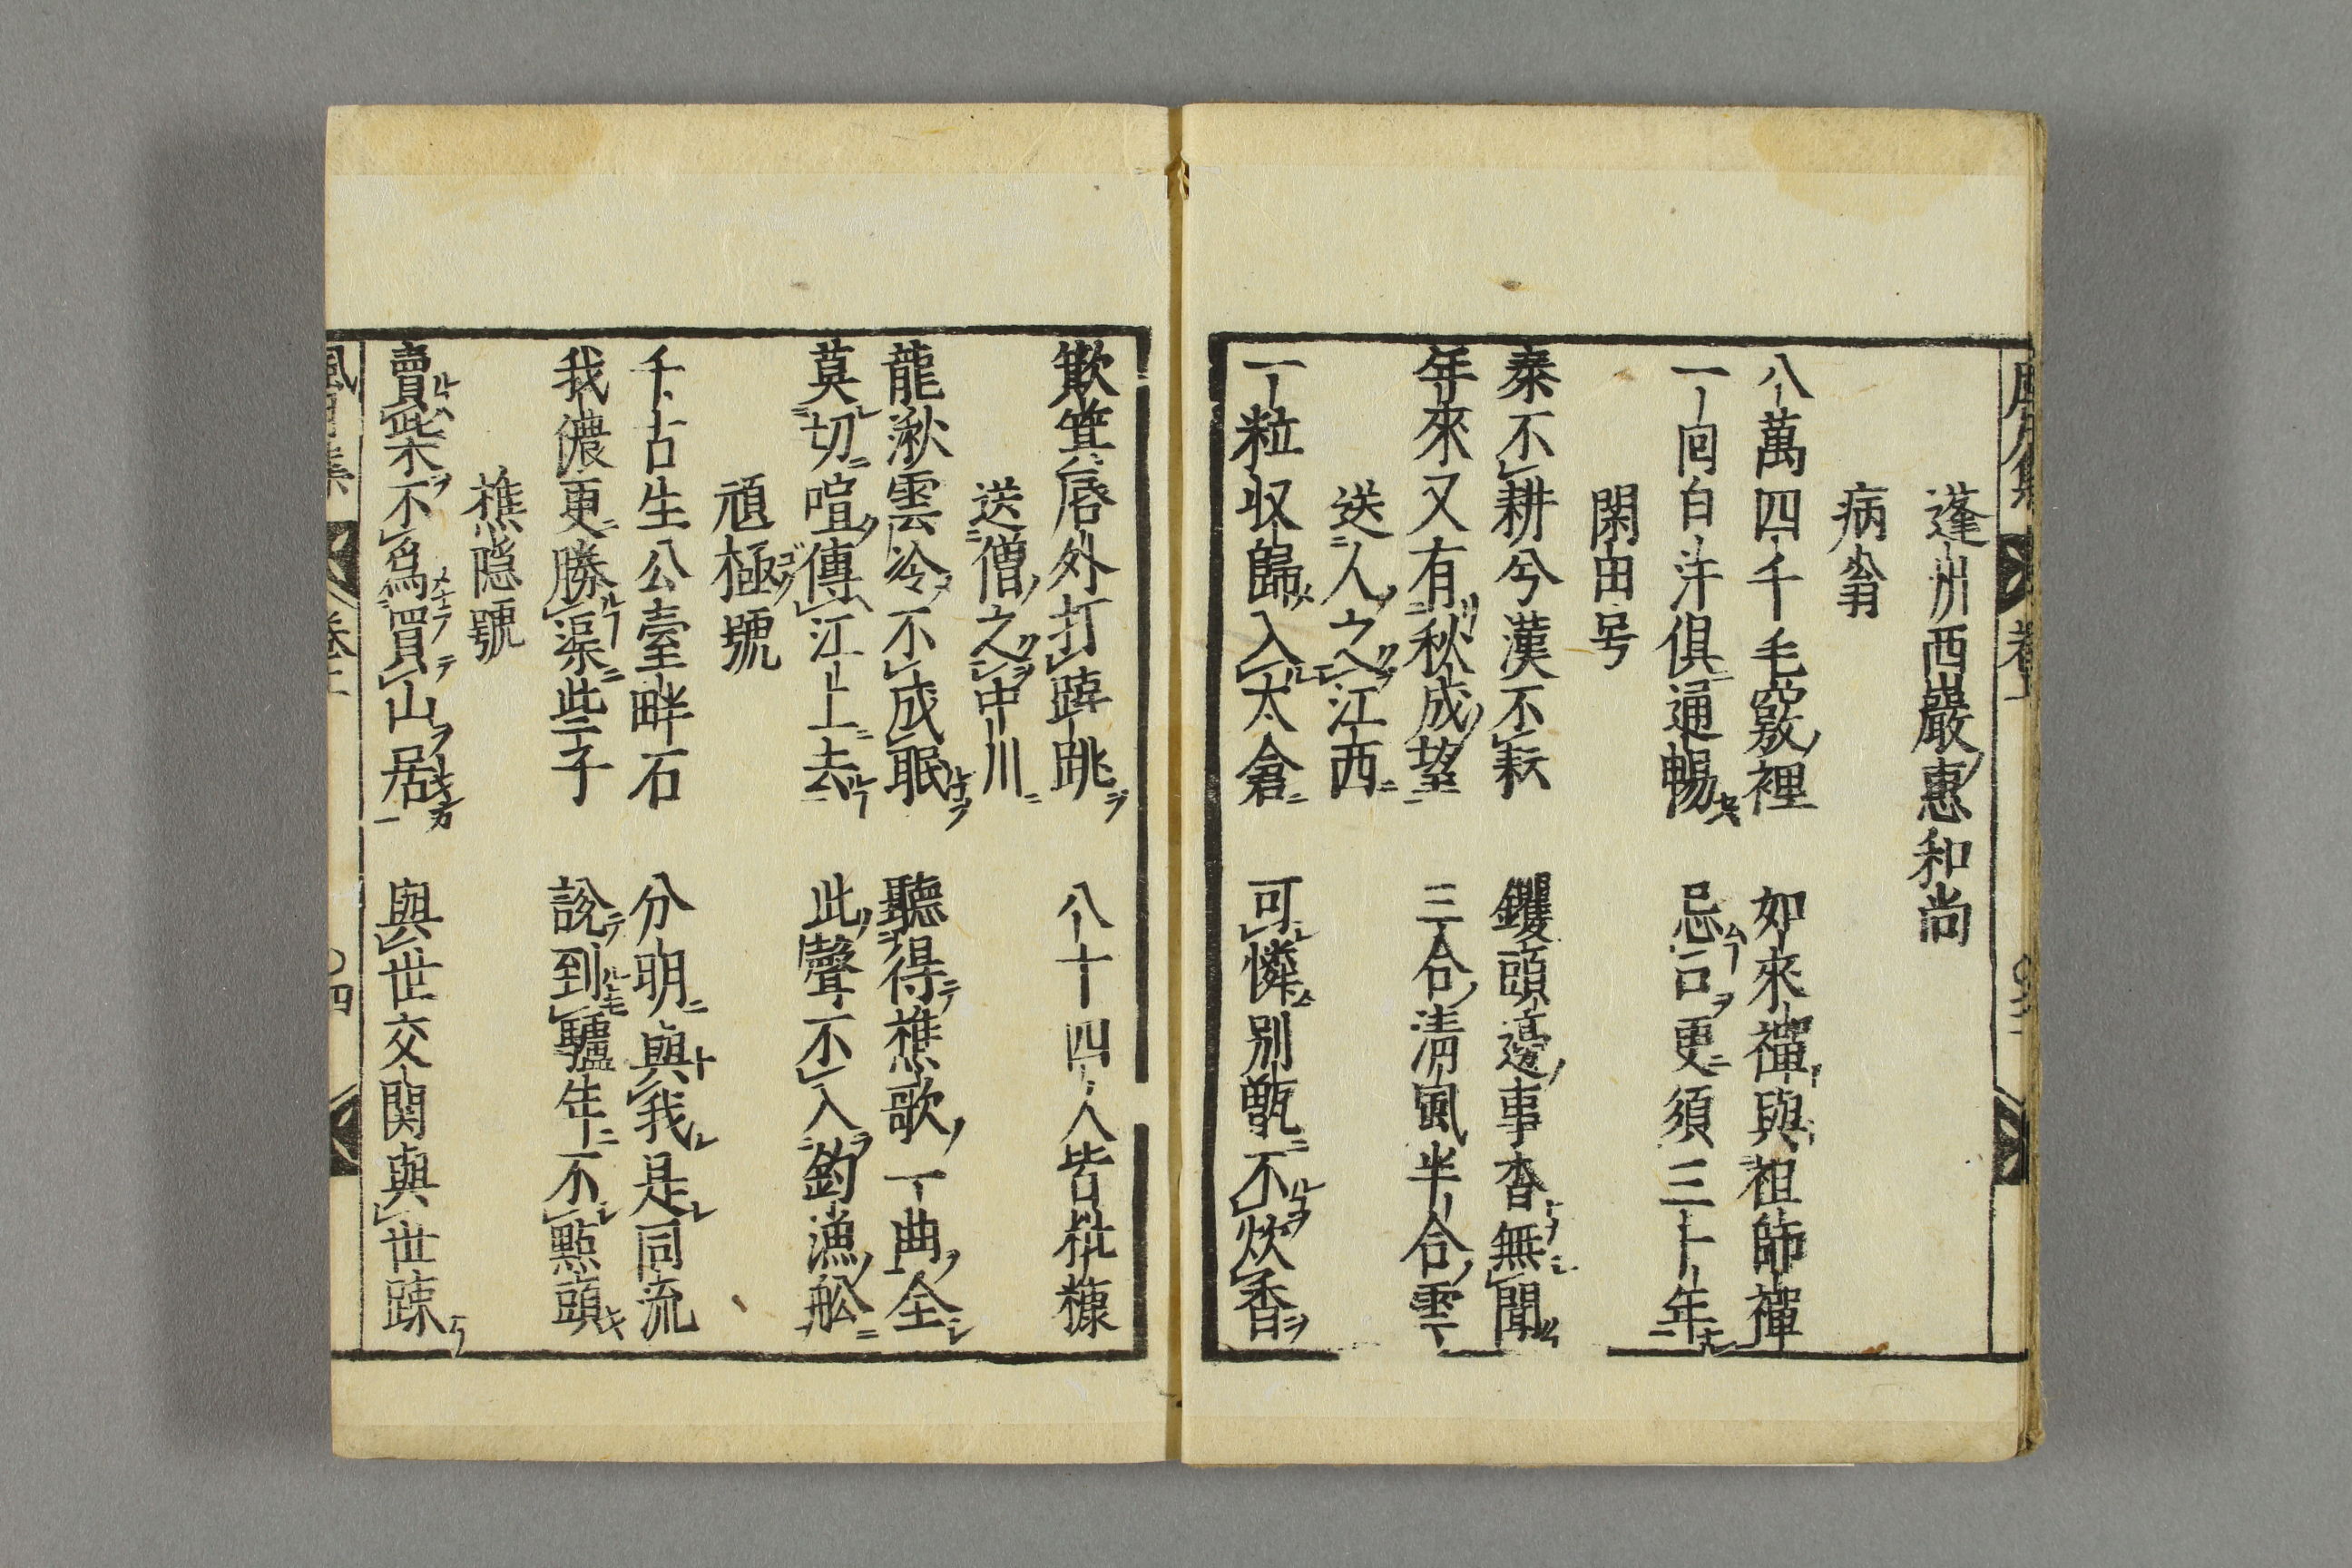 蓬州西巖惠和尚
病翁
八萬四千毛竅裡　如來禪與祖師禪
一回白汗俱通暢　忌口更須三十年
閑田号
秦不耕兮漢不耘　钁頭邊事杳無聞
年來又有秋成望　三合清風半合雲
送人之江西
一粒収歸入太倉　可憐別甑不炊香
簸箕唇外打𨁝跳　八十四人皆粃糠
送僧之中川
龍湫雲冷不成眠　聽得樵歌一曲全
莫切喧傳江上去　此聲不入釣漁舩
頑極號
千古生公臺畔石　分明與我是同流
我儂更勝渠些子　說到驢年不點頭
樵隠號
賣柴不爲買山居　與世交関與世踈